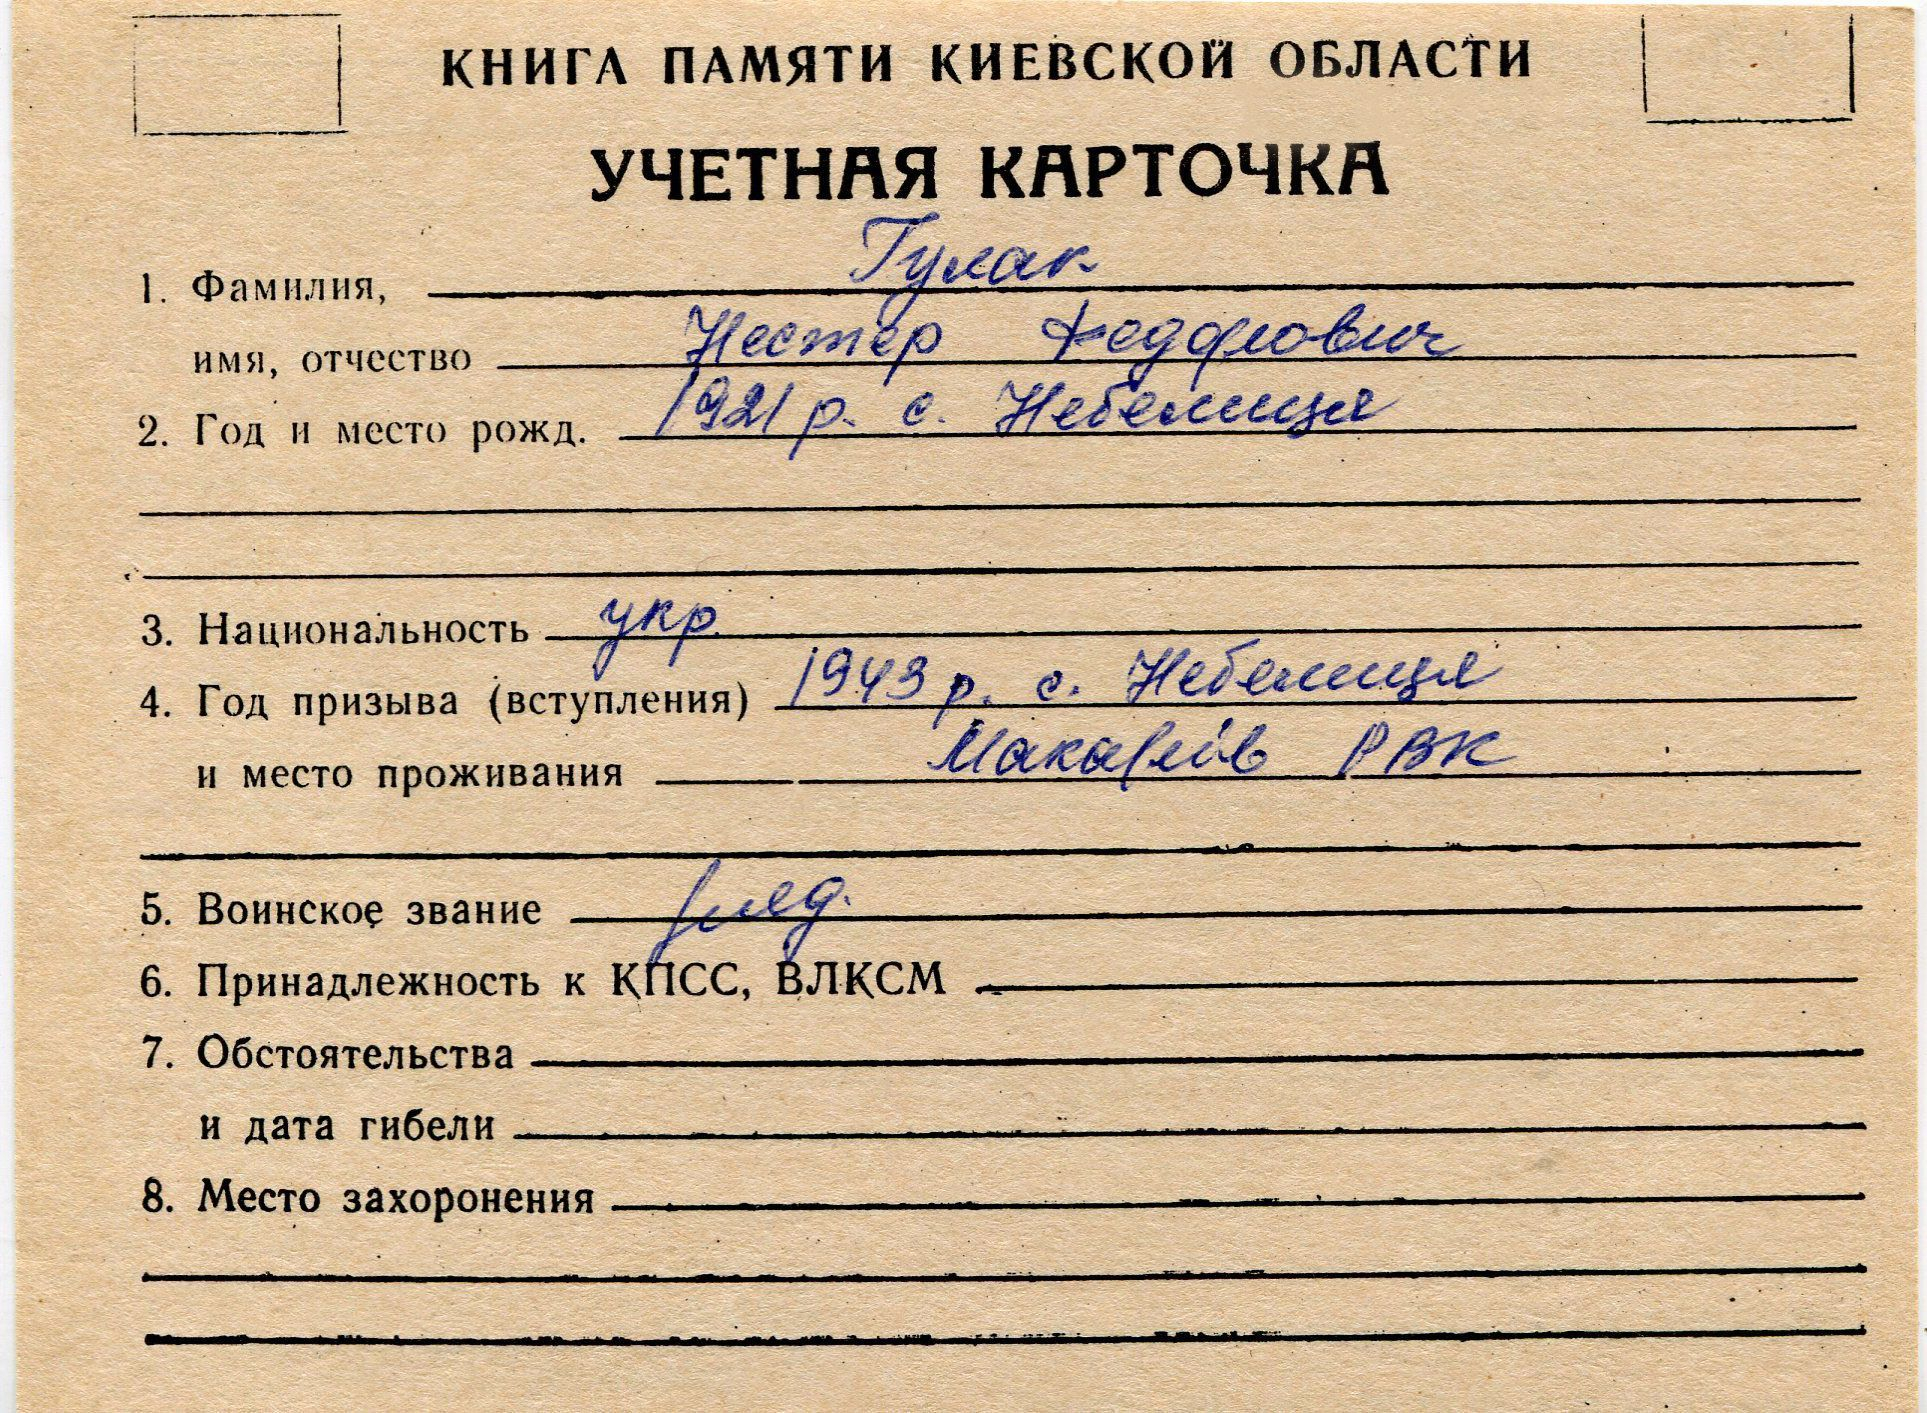 КНИГА ПАМЯТИ КИЕВСКОЙ ОБЛАСТИ
УЧЕТНАЯ КАРТОЧКА
1. Фамилия, Гулак
имя, отчество Нестер Федорович
2. Год и место рожд. 1921 р. с. Небелиця
3. Национальность укр.
4. Год призыва (вступления) 1943 р. с. Небелиця
и место проживания Макарів РВК
5. Воинское звание
6. Принадлежность к КПСС, ВЛКСМ
7. Обстоятельства
и дата гибели
8. Место захоронения